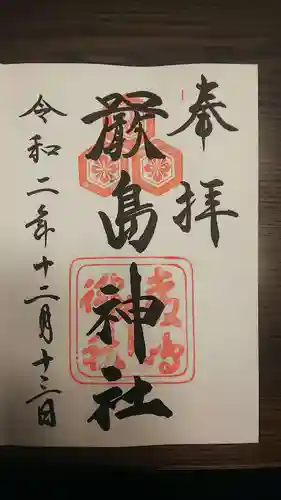 奉拝
厳島神社
令和二年十二月十三日